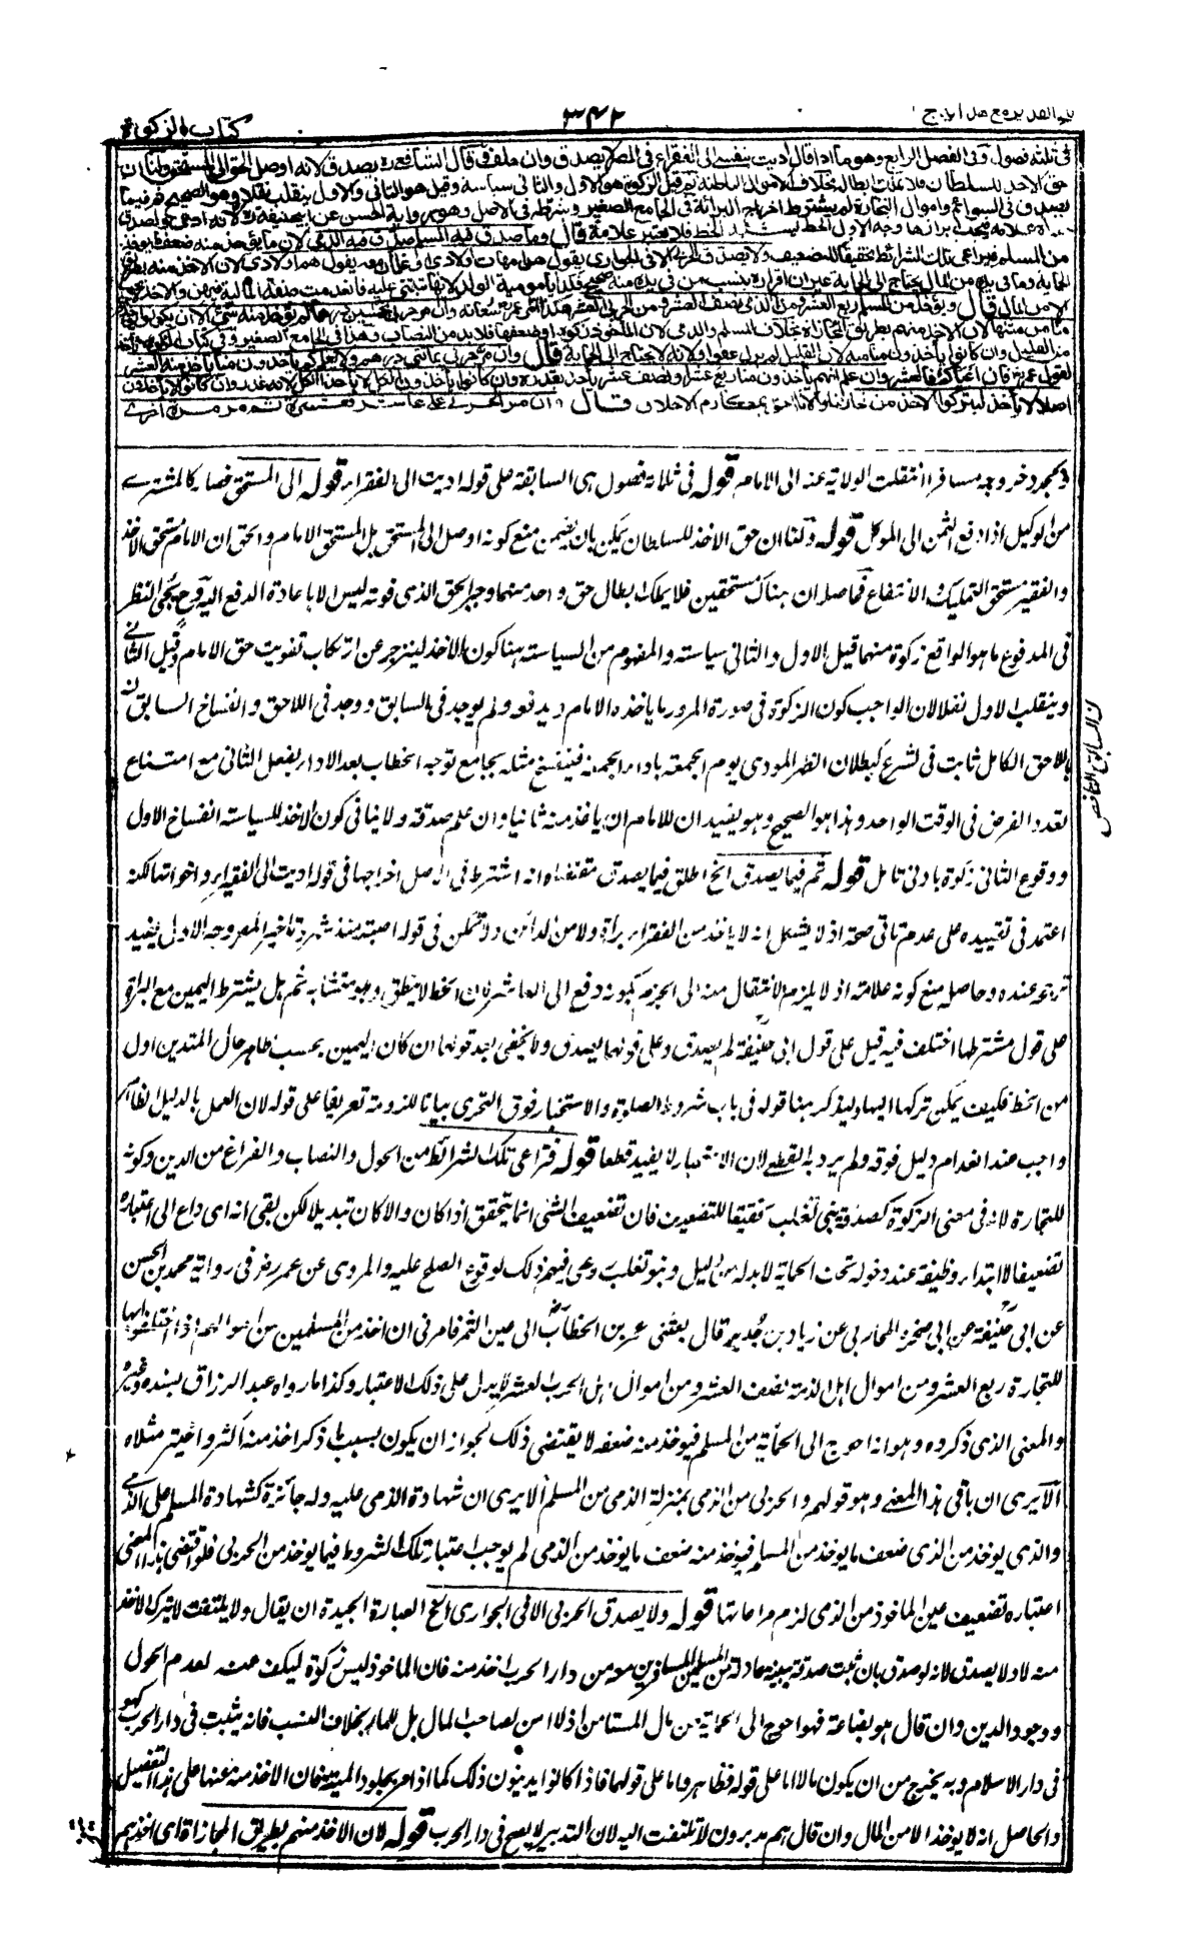 كتاب الزكوة
٣٤٢
فتح القدير مع هداية ج ١
فى ثلثة فصول وفى الفصل الرابع وهو ما اذا قال اديت بنفسى الى الفقراء فى المصر لا يصدق وان حلف وقال الشافعى يصدق لانه اوصل الحق الى المستحق ولنا ان
حق الاخذ للسلطان فلا يملك ابطاله بخلاف الاموال الباطنة ثم قيل الزكوة هو الاول والثانى سياسة وقيل هو الثانى والاول ينقلب نفلا وهو الصحيح ثم فيما
يصدق فى السوائم واموال التجارة لم يشترط اخراج البراءة فى الجامع الصغير وشرطه فى الاصل وهو رواية الحسن عن ابيحنيفة لانه ادعى ولصدق
علامة فيجب ابرازها وجه الاول الخط يشبه الخط فلا يعتبر علامة قال وما صدق فيه المسلم صدق فيه الذمى لان ما يؤخذ منه ضعف ما يؤخذ
من المسلم فيراعى تلك الشرائط تحقيقا للتضعيف ولا يصدق الحربى الا فى الجوارى يقول هن امهات اولادى او غلمان معه يقول هم اولادى لان الاخذ منه بطريق
الحماية وما فى يده من المال يحتاج الى الحماية غير ان اقراره بنسب من فى يده منه صحيح فكذا بامومية الولد لانها تبتنى عليه فانعدمت صفة المالية فيهن والاخذ لا يجب
الا من المال قال ويؤخذ من المسلم ربع العشر ومن الذمى نصف العشر ومن الحربى العشر هكذا امر عمر سعاته وان مر حربى بخمسين درهما لم يؤخذ منه شئ الا ان يكونوا ياخذون
منا من مثلها لان الاخذ منهم بطريق المجازاة بخلاف المسلم والذمى لان الماخوذ زكوة او ضعفها فلا بد من النصاب وهذا فى الجامع الصغير وفى كتاب الزكوة لا ناخذ
من القليل وان كانوا ياخذون منا منه لان القليل لم يزل عفوا ولانه لا يحتاج الى الحماية قال وان مر حربى بمائتى درهم ولا يعلم كم ياخذون منا ياخذ منه العشر
لقول عمر فان اعياكم فالعشر وان علم انهم ياخذون منا ربع عشر او نصف عشر ياخذ بقدره وان كانوا ياخذون الكل لا ياخذ الكل لانه غدر وان كانوا لا ياخذون
اصلا لا ياخذ ليتركوا الاخذ من تجارنا ولانا احق بمكارم الاخلاق قال وان مر الحربى على عاشر فعشره ثم مر مرة اخرى
بمجرد خروجه مسافرا انتقلت الولاية عنه الى الامام قوله فى ثلاثة فصول هى السابقة على قوله اديت الى الفقراء قوله الى المستحق فصار كالمشترى
من الوكيل اذا دفع الثمن الى الموكل قوله ولنا ان حق الاخذ للسلطان يمكن بان يضمن منع كونه اوصل الى المستحق بل المستحق الامام والحق ان الامام مستحق الاخذ
والفقير مستحق التمليك والانتفاع فحاصله ان هناك مستحقين فلا يملك ابطال حق واحد منهما وجبر الحق الذى فوته ليس الا باعادة الدفع اليه وح يجئ النظر
فى المدفوع ما هو الواقع زكوة منهما قيل الاول والثانى سياسته والمفهوم من السياسته هنا كون الاخذ لينزجر عن ارتكاب تفويت حق الامام وقيل الثانى
وينقلب الاول نفلا لان الواجب كون الزكوة فى صورة المرور ما ياخذه الامام ديدفعه ولم يوجد فى السابق ووجد فى اللاحق وانفساخ السابق
باللاحق الكامل ثابت فى الشرع كبطلان الظهر المودى يوم الجمعة باداء الجمعة فينفسخ مثله بجامع توجه الخطاب بعد الاداء بفعل الثانى مع امتناع
تعدد الفرض فى الوقت الواحد وهذا هو الصحيح وهو يفيد ان للامام ان ياخذ منه ثانيا وان علم صدقه ولا ينافى كون الاخذ للسياسته انفساخ الاول
ووقوع الثانى زكوة بادنى تامل قوله ثم فيما يصدق الخ اطلق فيما يصدق مقتضاه انه اشترط فى الاصل اخراجها فى قوله اديت الى الفقراء واخواتها لكنه
اعتمد فى تقييده على عدم تاتى صحته اذ لا يشكل انه لا ياخذ من الفقراء براءة ولا من الدائن ولا تمكن فى قوله اصبته منذ شهر وتاخير المصر وجه الاول يفيد
ترجحه عنده وحاصله منع كونه علامته اذ لا يلزم الانتقال منه الى الجزم بكونه دفع الى العاشر لان الخط لا ينطق وهو متشابه ثم هل يشترط اليمين مع البراءة
على قول مشترطها اختلف فيه قيل على قول ابى حنيفة لم يصدق وعلى قولهما يصدق ولا يخفى بعد قولهما ان كان اليمين بحسب ظاهر حال المتدين اول
من الخط فكيف يمكن تركها اليها وليذكر هنا قوله فى باب شروط الصلوة والاستخبار فوق التحرى بيانا للزومه تعريفا على قوله لان العمل بالدليل الظاهر
واجب عند انعدام دليل فوقه ولم يرد به القطع لان الاستخبار لا يفيد قطعا قوله فتراعى تلك الشرائط من الحول والنصاب والفراغ من الدين وكونه
للتجارة لانه فى معنى الزكوة كصدقة بنى تغلب تحقيقا للتضعيف فان تضعيف الشئ انما يتحقق اذا كان والا كان تبديلا لكن بقى انه اى داع الى اعتباره
تضعيفا لا ابتداء وظيفة عند دخوله تحت الحماية لا بد له من دليل وبنو تغلب روعى فيهم ذلك لوقوع الصلح عليه والمروى عن عمر رض فى رواية محمد بن الحسن
عن ابى حنيفة عن ابى صخرة المحاربى عن زياد بن حدير قال بعثنى عمر بن الخطاب رض الى عين التمر فامرنى ان اخذ من المسلمين من اموالهم اذا اختلفوا بها
للتجارة ربع العشر ومن اموال اهل الذمة نصف العشر ومن اموال اهل الحرب العشر لا يدل على ذلك الاعتبار وكذا ما رواه عبد الرزاق بسنده وغيره
والمعنى الذى ذكروه وهو انه احوج الى الحماية من المسلم فيوخذ منه ضعفه لا يقتضى ذلك لجواز ان يكون بسبب ما ذكر اخذ منه اكثر واختير مثلاه
الا يرى ان باقى هذا المعنى وهو قولهم والحربى من الذمى بمنزلة الذمى من المسلم الا يرى ان شهادة الذمى عليه وله جائزة كشهادة المسلم على الذمى
والذى يوخذ من الذمى ضعف ما يوخذ من المسلم فيوخذ منه ضعف ما يوخذ من الذمى لم يوجب اعتبار تلك الشروط فيما يوخذ من الحربى فلو اقتضى هذا المعنى
اعتباره تضعيف عين الماخوذ من الذمى لزم مراعاتها قوله ولا يصدق الحربى الا فى الجوارى الخ العبارة الجيدة ان يقال ولا يلتفت لا يترك الاخذ
منه لا ولا يصدق لانه لو صدق بان ثبت صدقه ببينة عادلة من المسلمين المسافرين معه من دار الحرب اخذ منه فان الماخوذ ليس زكوة ليكف عنه لعدم الحول
ووجود الدين وان قال هو بضاعة فهو احوج الى الحماية من مال المستامن اذ لا امن لصاحب المال بل للمار بخلاف النسب فانه يثبت فى دار الحرب كهو
فى دار الاسلام وبه يخرج من ان يكون مالا اما على قوله فظاهر واما على قولهما فاذا كانوا يدينون ذلك كما اذا مر بجلود الميتة فان الاخذ منه عنها على هذا التفصيل
والحاصل انه لا يوخذ الا من المال وان قال هم مدبرون لا تلتفت اليه لان التدبير لا يصح فى دار الحرب قوله لان الاخذ منهم بطريق المجازاة اى اخذهم
لان السابق الناقص